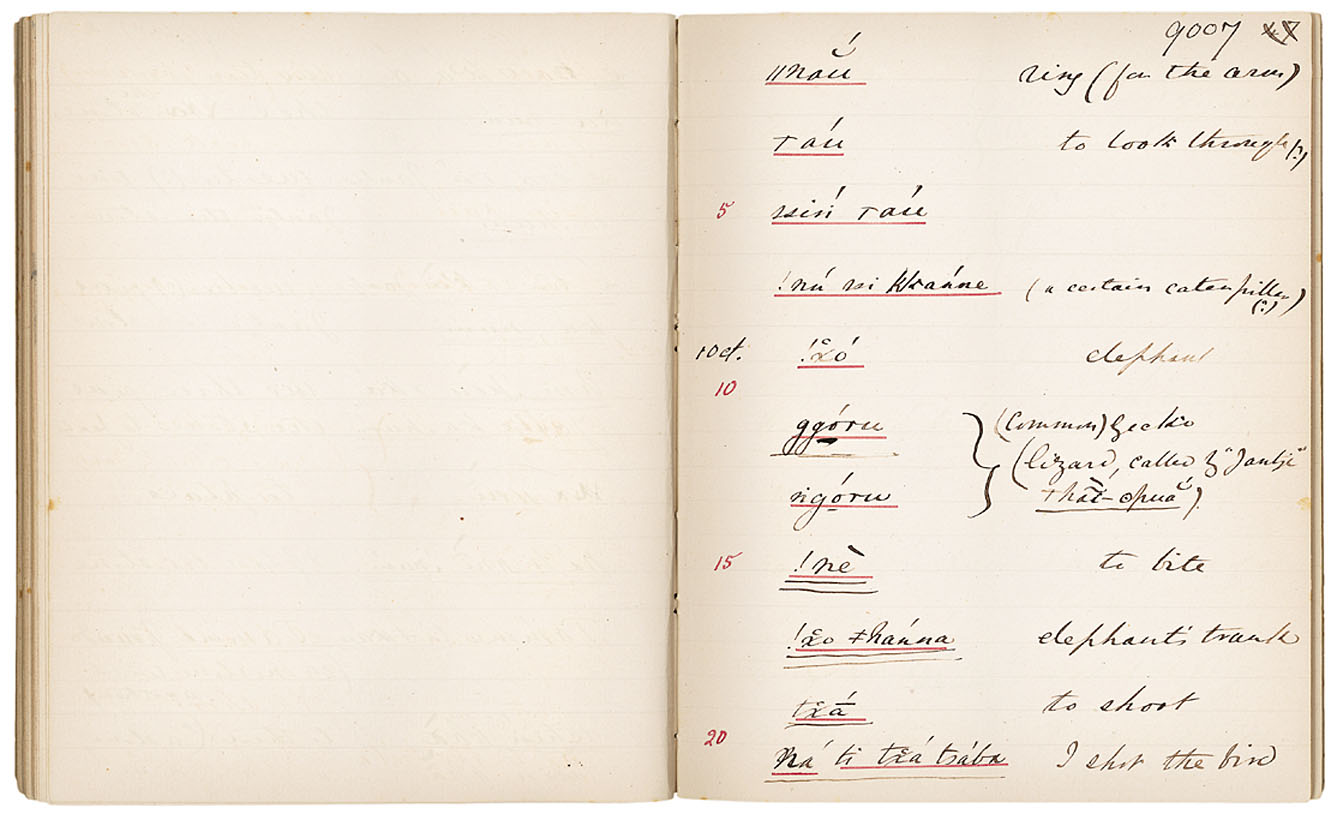 9007
ǁnăú ring (for the arm)
táu to look through (?)
5 ssiń táu
!nú ssi kkaúne (a certain caterpillar (?))
1 Oct. !x̥ó elephant
10
ggóru (Common) Gecko
(lizard, called by "Jantje"
ngóru
15 !nè to bite
!x̥o ǂhánna elephant's trunk
tx̥á to shoot
20
Ná ti tx̥á tsába I shot the bird